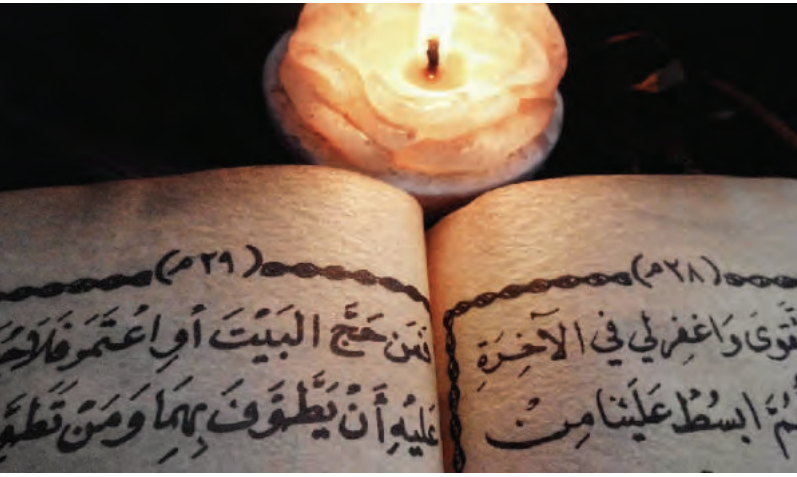 (٢٨ م)
ـقْوَى وَاغْفِرلِي فِي الآخِرَةِ
ـهُمَّ ابْسُطْ عَلَيْنَا مِنْ
(٢٩ م)
فَمَن حَجَّ البَيْتَ أَوِ اعْتَمَرَ فَلَا جُـ
عَلَيْهِ أَنْ يَطَّوَّفَ بِهِمَا وَمَنْ تَطَوَّ